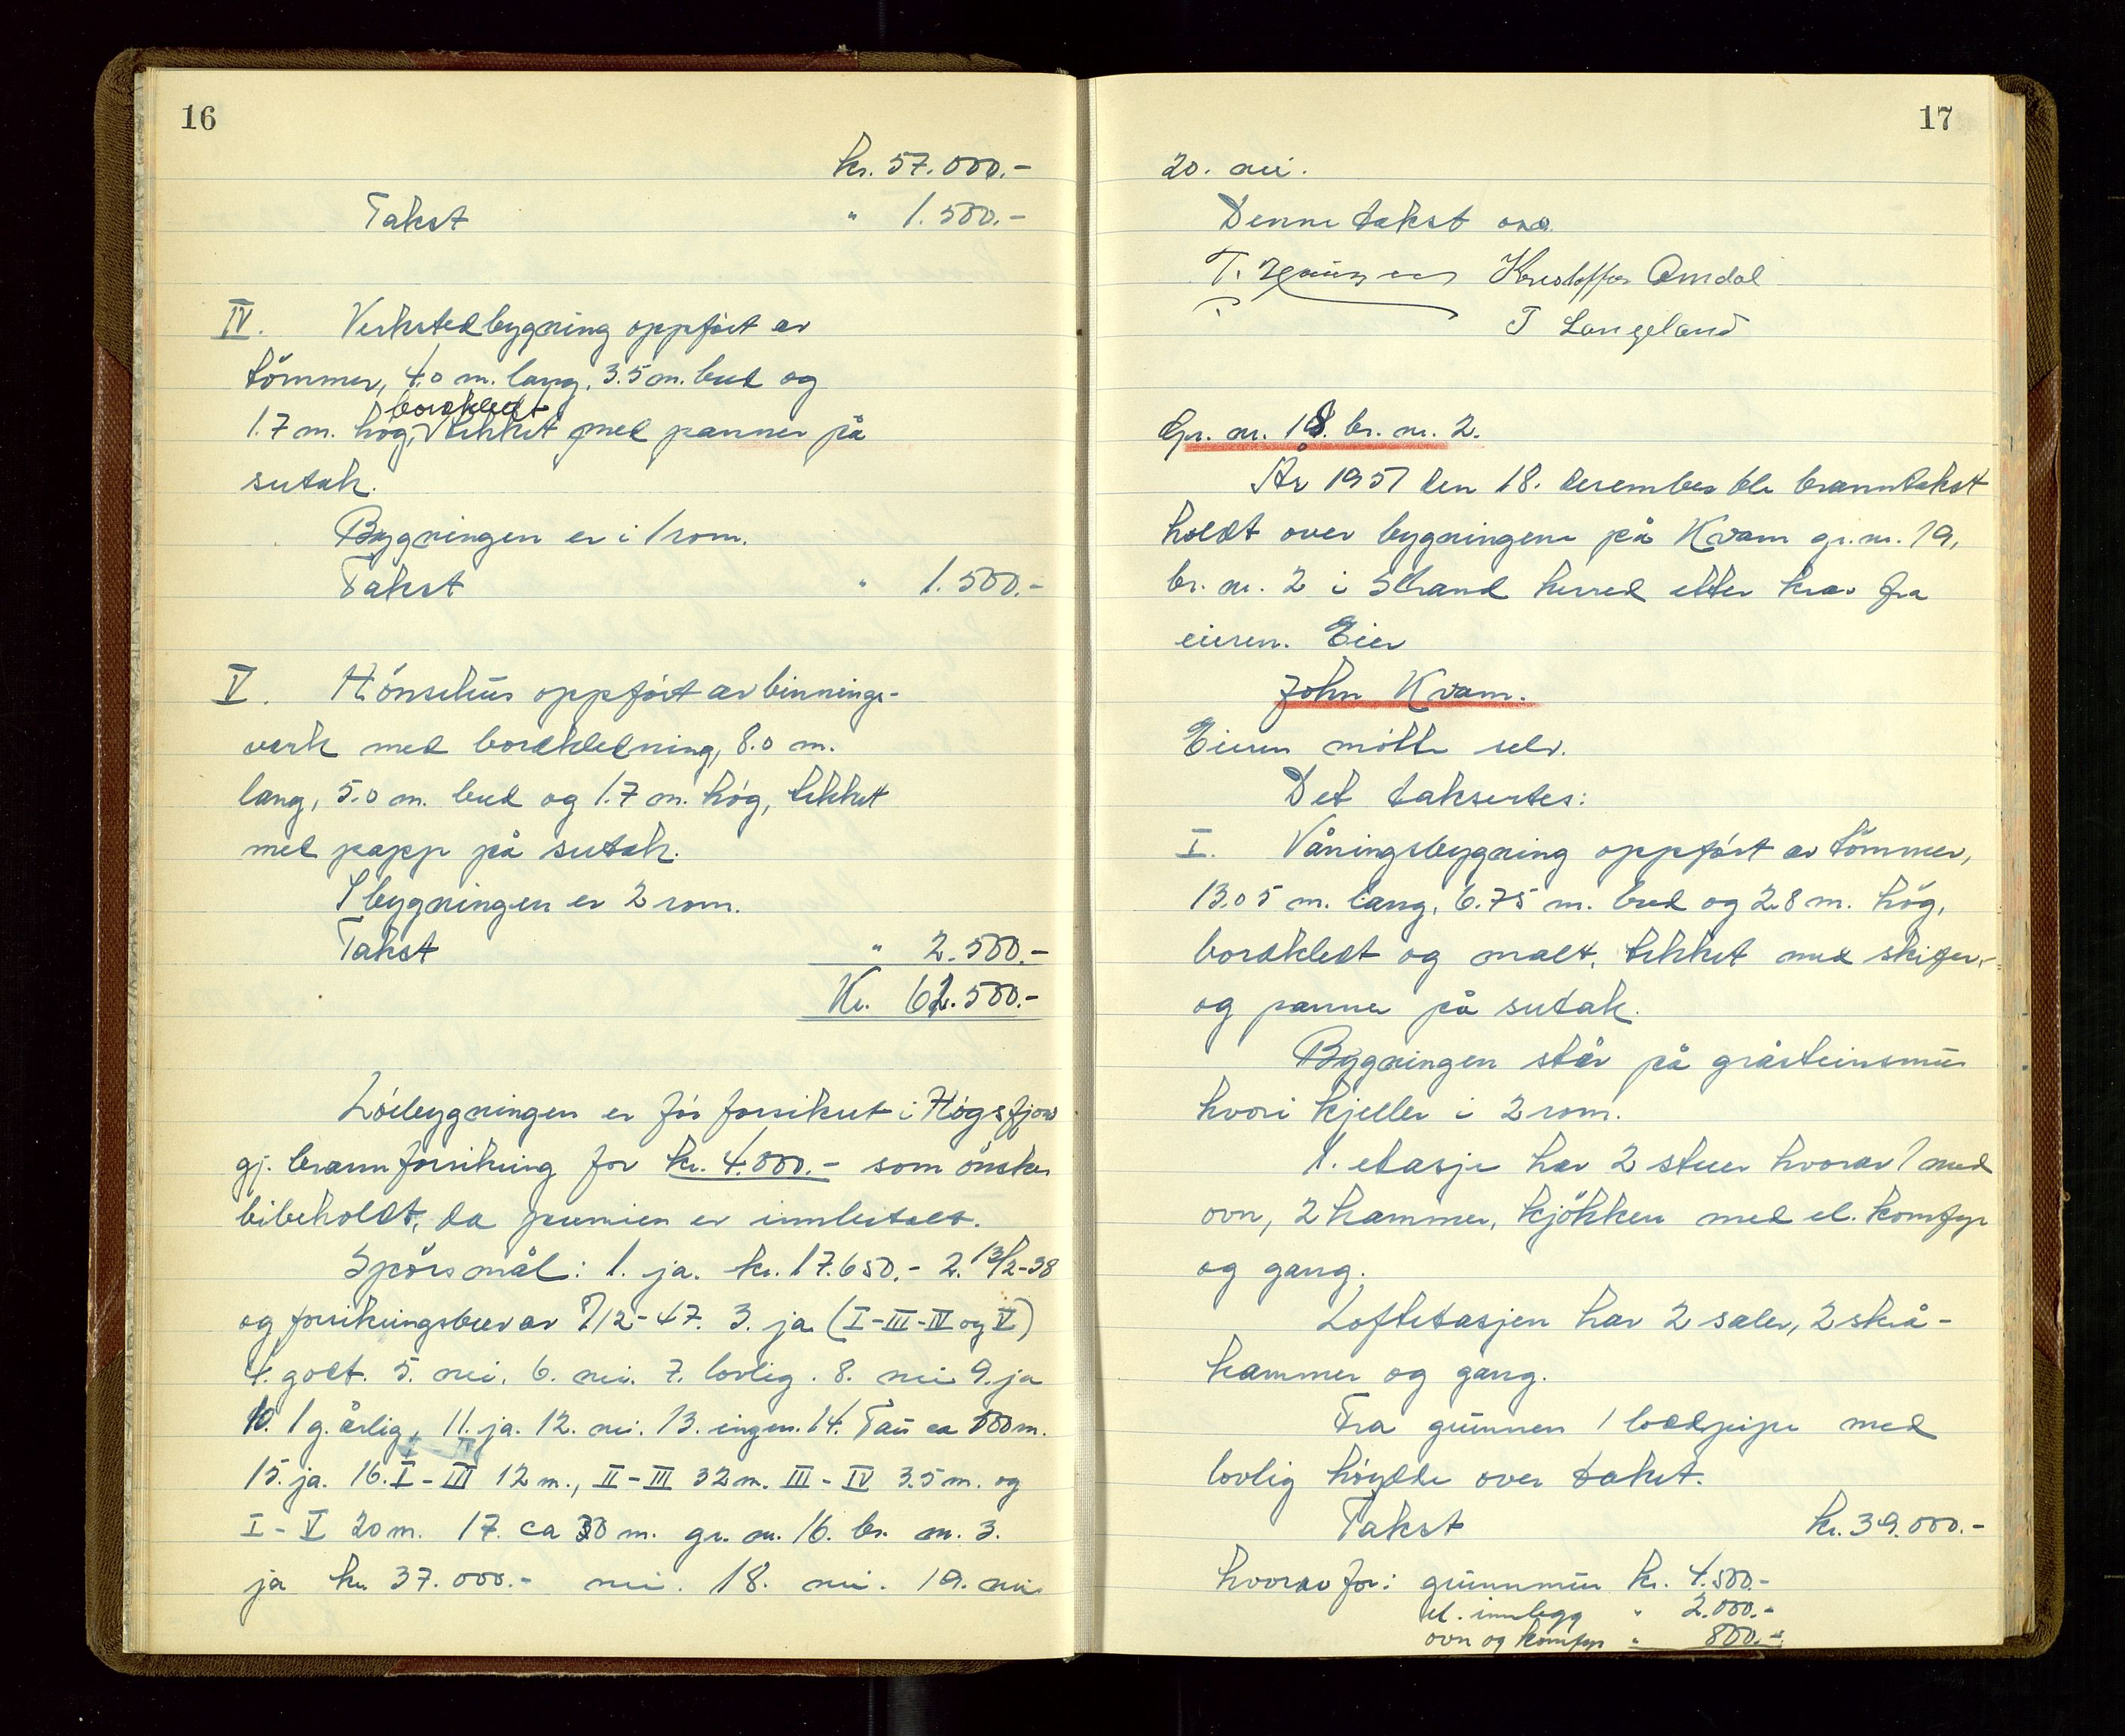 16
kr. 57.000.-
Takst " 1.500.-
IV. Verkstedbygning oppført av
tömmer, 4.0 m. lang, 3.5 m. bred og
bordkledt
1.7 m. høg, tekket med panner på
sutak.
Bygningen er i 1 rom.
Takst " 1.500.-
V. Hönsehus oppført av binnings-
verk med bordkledning, 8.0 m.
lang, 5.0 m. bred og 1.7 m. høg, tekket
med papp på sutak.
I bygningen er 2 rom.
Takst " 2.500.-
Kr. 62.500.-
Löebygningen er før forsikret i Høgsfjord
gj. brannforsikring for kr. 4.000.- som önskes
bibeholdt, da premien er innbetalt.
Spörsmål: 1. ja. kr. 17.650.- 2. 13/2-38
og forsikringsbrev av 7/12-47. 3. ja (I-III-IV og V)
4. godt. 5. nei. 6. nei. 7. lovlig. 8. nei 9. ja
10. 1 g. årlig, 11. ja. 12. nei. 13. ingen. 14. Tau ca 500 m.
15. ja. 16. I-III 12 m., II-III 32 m. III-IV 3.5 m. og
I-V 20 m. 17. ca 30 m. gr. nr. 16. br. nr. 3.
ja kr 37.000.- nei. 18. nei. 19. nei
17
20. nei.
Denne takst
Kristoffer Amdal
T Langeland
Gr. nr. 18. br. nr. 2.
År 1951 den 18. desember ble branntakst
holdt over bygningene på Kvam gr. nr. 19,
br. nr. 2 i Strand herred etter krav fra
eieren. Eier
John Kvam.
Eieren mötte selv.
Det taksertes:
I. Våningsbygning oppført av tömmer,
13.05 m. lang, 6.75 m. bred og 2.8 m. høg,
bordkledt og malt, tekket med skifer-
og panner på sutak.
Bygningen står på gråsteinsmur
hvori kjeller i 2 rom.
1. etasje har 2 stuer hvorav 1 med
ovn, 2 kammer, kjökken med el. komfyr
og gang.
Loftetasjen har 2 saler, 2 skrå-
kammer og gang.
Fra grunnen 1 loddpipe med
lovlig höyde over taket.
Takst kr. 39.000.-
hvorav for: grunnmur kr. 4.500.-
el. innlegg " 2.000.-
ovn og komfyr " 800.-